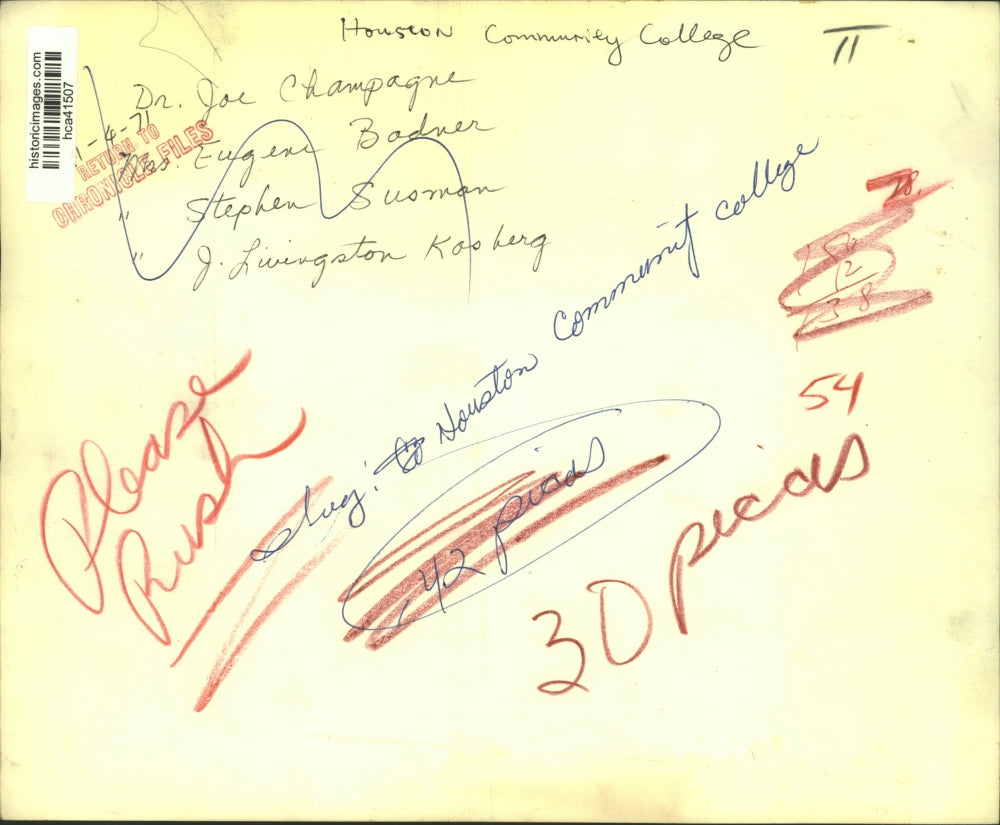 Houston Community College II
historicimages.com
hca41507
Dr. Joe Champagne
1-4-71
RETURN TO
CHRONICLE FILES
Mrs. Eugene Bodner
" Stephen Susman
" J. Livingston Kosberg
78
150
12
138
54
Please
Rush
slug: to Houston Community college
42 picas
30 picas